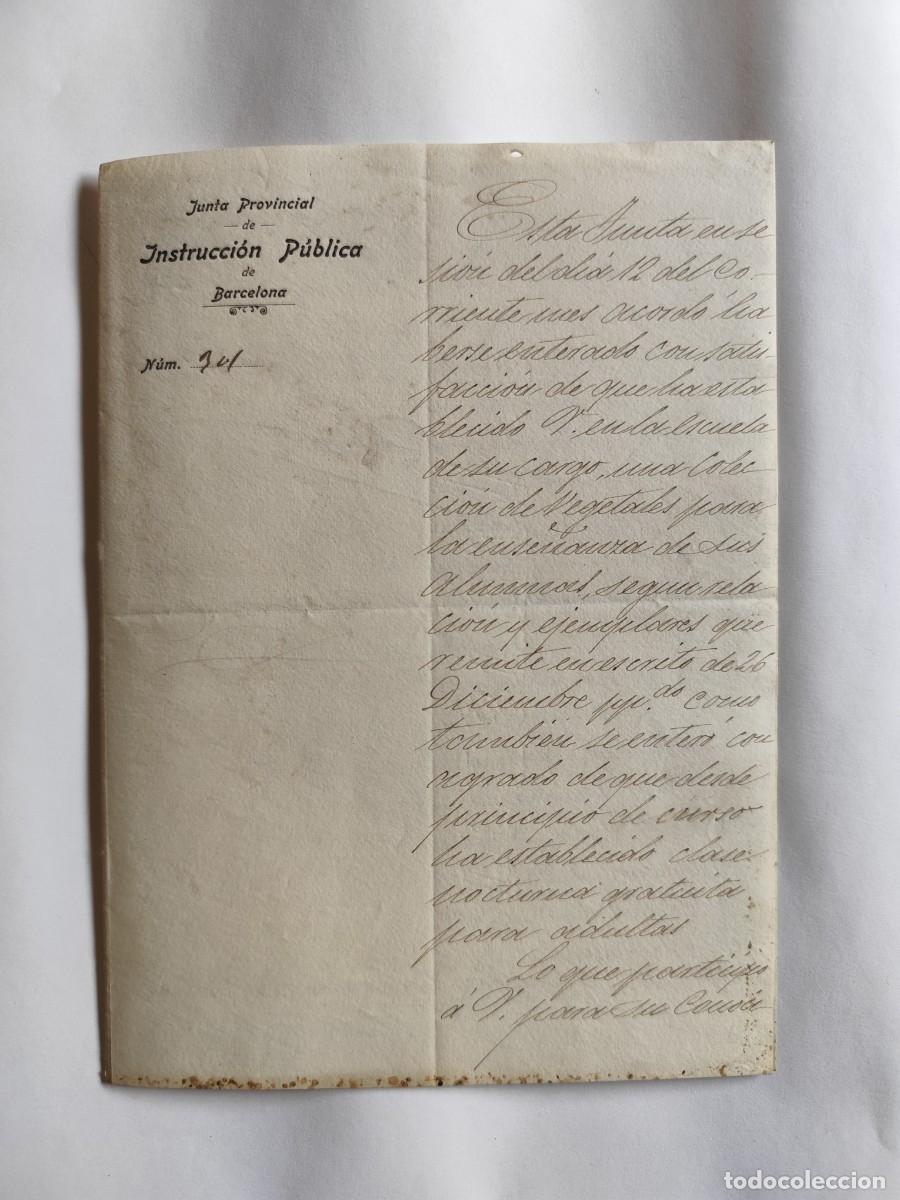 Junta Provincial
— de —
Instrucción Pública
de
Barcelona
Núm. 301
Esta Junta en se
sión del día 12 del Co-
rriente mes acordó ha
berse enterado con satis-
facción de que ha esta
blecido V. en la escuela
de su cargo, una Colec-
ción de Vegetales para
la enseñanza de sus
Alumnas, segun rela
ción y ejemplares que
remite en escrito de 26
Diciembre pp.do como
tambien se enteró con
agrado de que desde
principio de curso
ha establecido clase
nocturna gratuita
para adultas
Lo que participo
á V. para su Conoci
todocoleccion